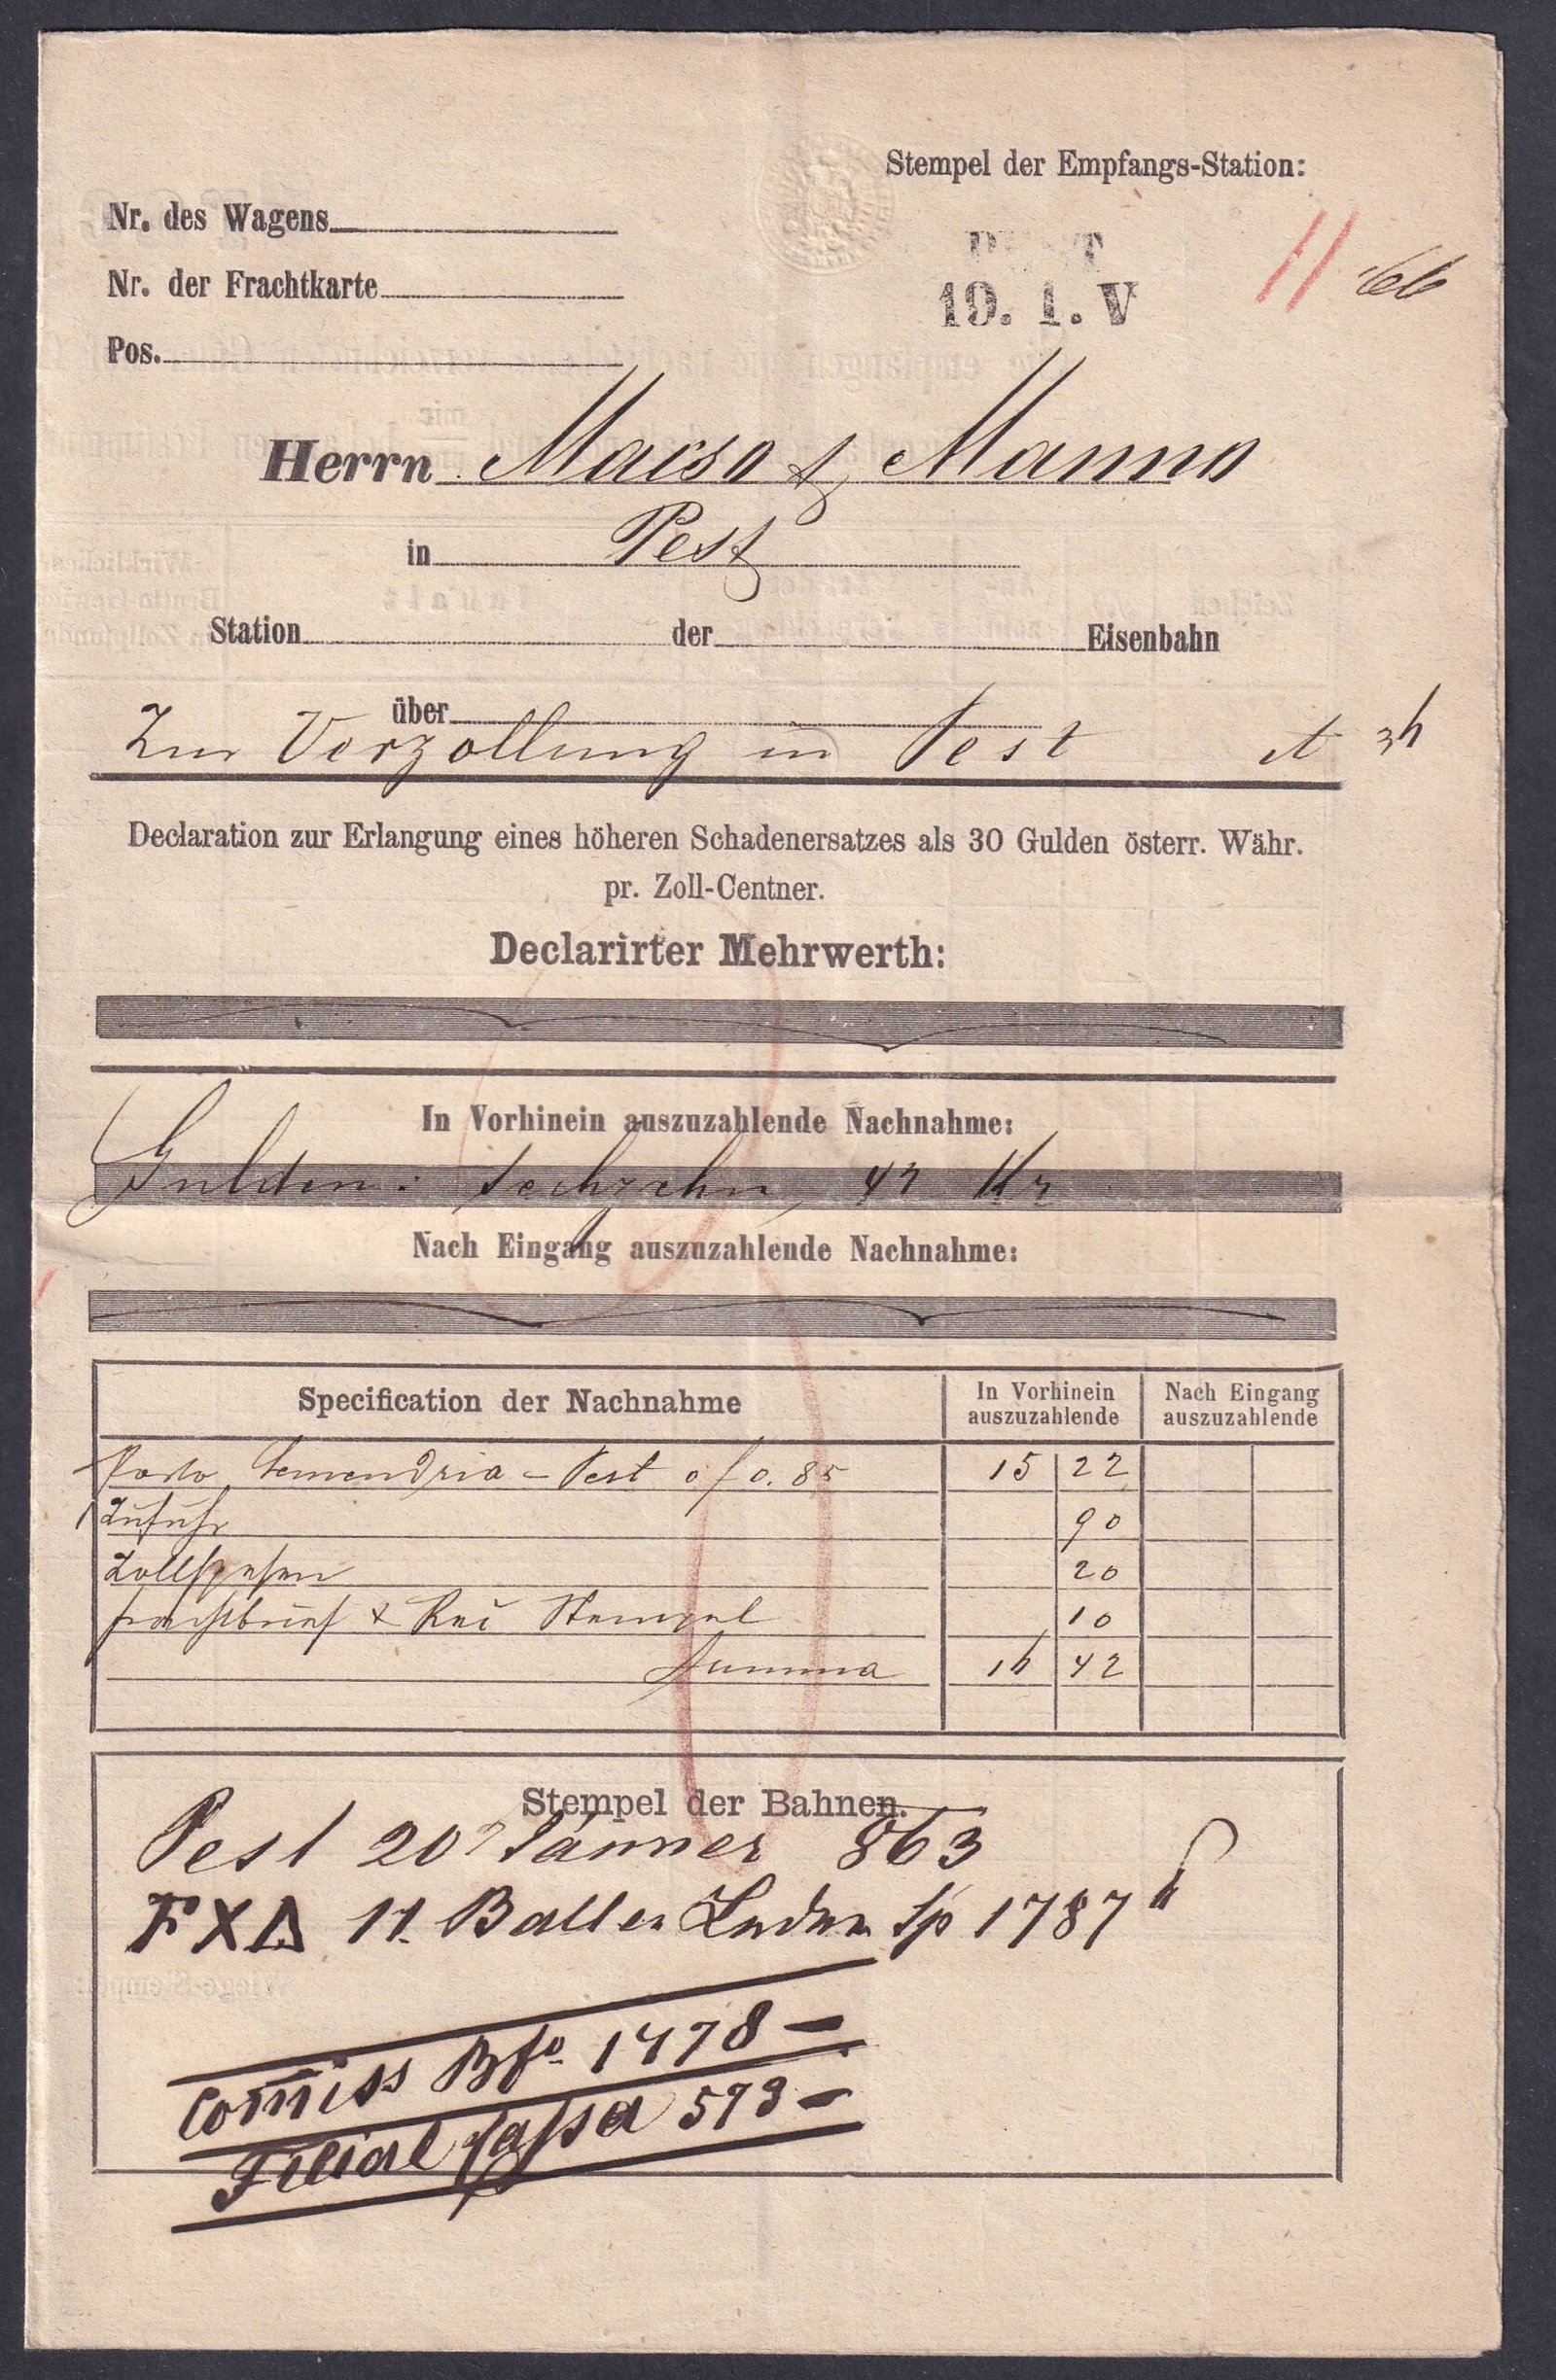 Stempel der Empfangs-Station:
Nr. des Wagens
19. 1. V
11
Nr. der Frachtkarte
Pos.
Herrn Macso & Manno
in Pest
Station der Eisenbahn
über
Zur Verzollung in Pest
Declaration zur Erlangung eines höheren Schadenersatzes als 30 Gulden österr. Währ.
pr. Zoll-Centner.
Declarirter Mehrwerth:
In Vorhinein auszuzahlende Nachnahme:
Gulden: Sechzehn, 42 Kr
Nach Eingang auszuzahlende Nachnahme:
Specification der Nachnahme In Vorhinein auszuzahlende Nach Eingang auszuzahlende
Porto Semendria - Pest 0.85 15 22
Zufuhr 90
Zollspesen 20
Frachtbrief & Stempel 10
Summa 16 42
Stempel der Bahnen.
Pest 20 Jänner 863
F X Δ 11 Ballen Sp 1787
Comiss Bfo 1478 -
Filial Cassa 593 -